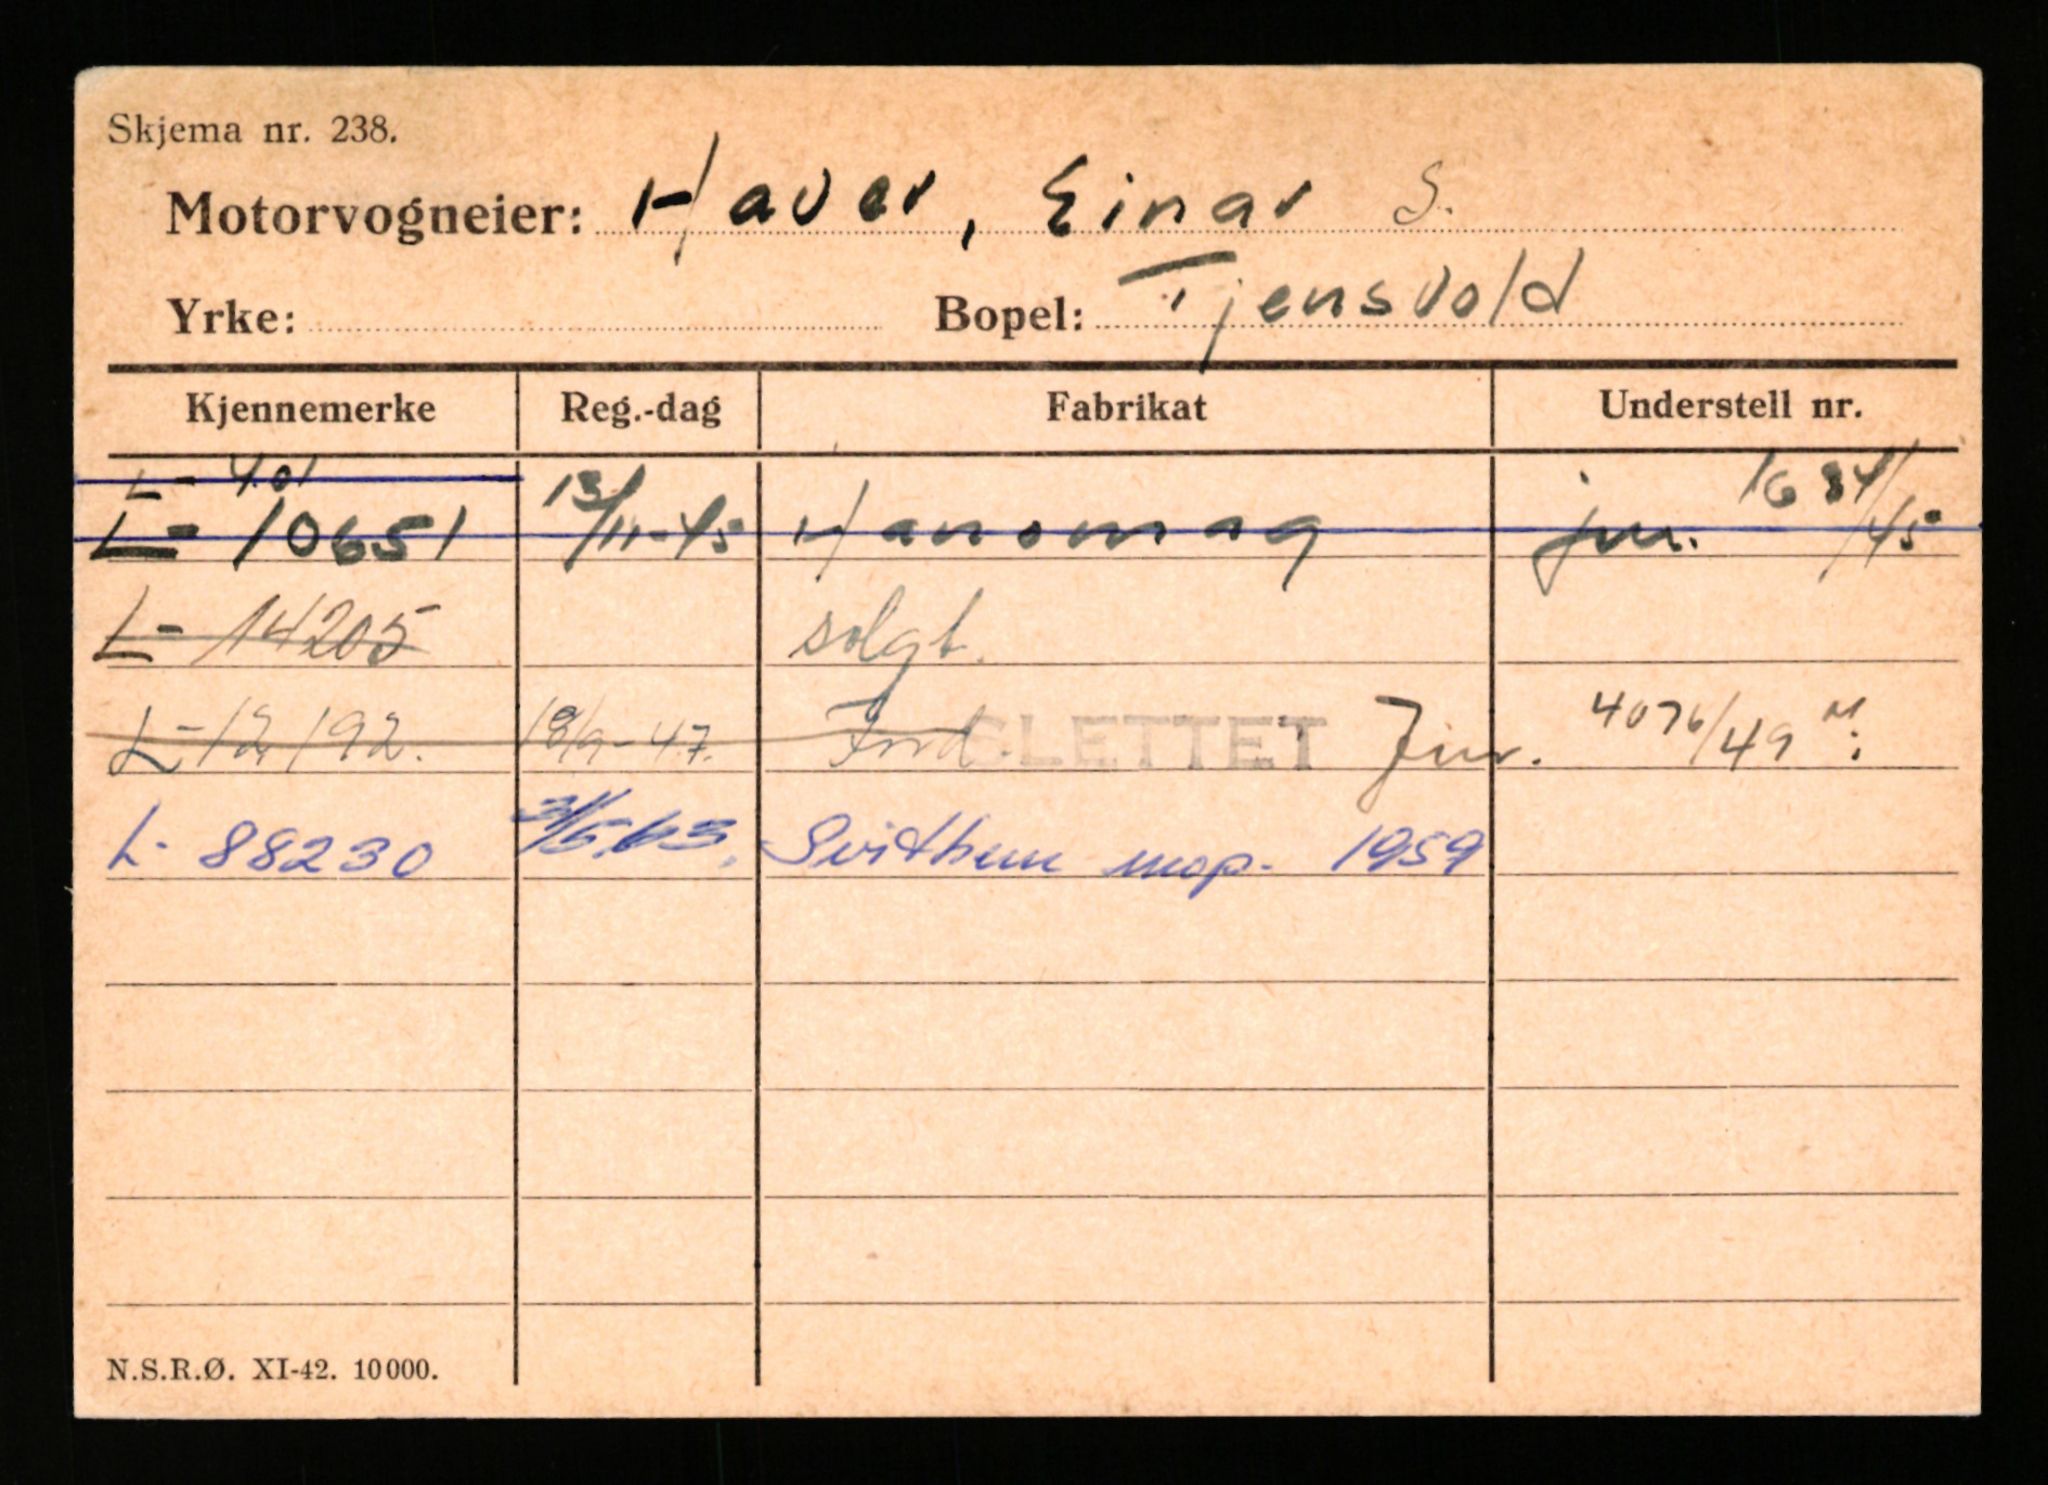 Skjema nr. 238.
Motorvogneier: Haver, Einar S.
Yrke: Bopel: Tjensvold
Kjennemerke Reg.-dag Fabrikat Understell nr.
L- 401
L- 10651 13/11-45 Hanomag jnr. 1634/45
L- 14205 solgt.
L- 12192. 18/9-47. Ford. SLETTET Jnr. 4076/49
L- 88230 31/5.63. Svithun mop. 1959
N.S.R.Ø. XI-42. 10000.